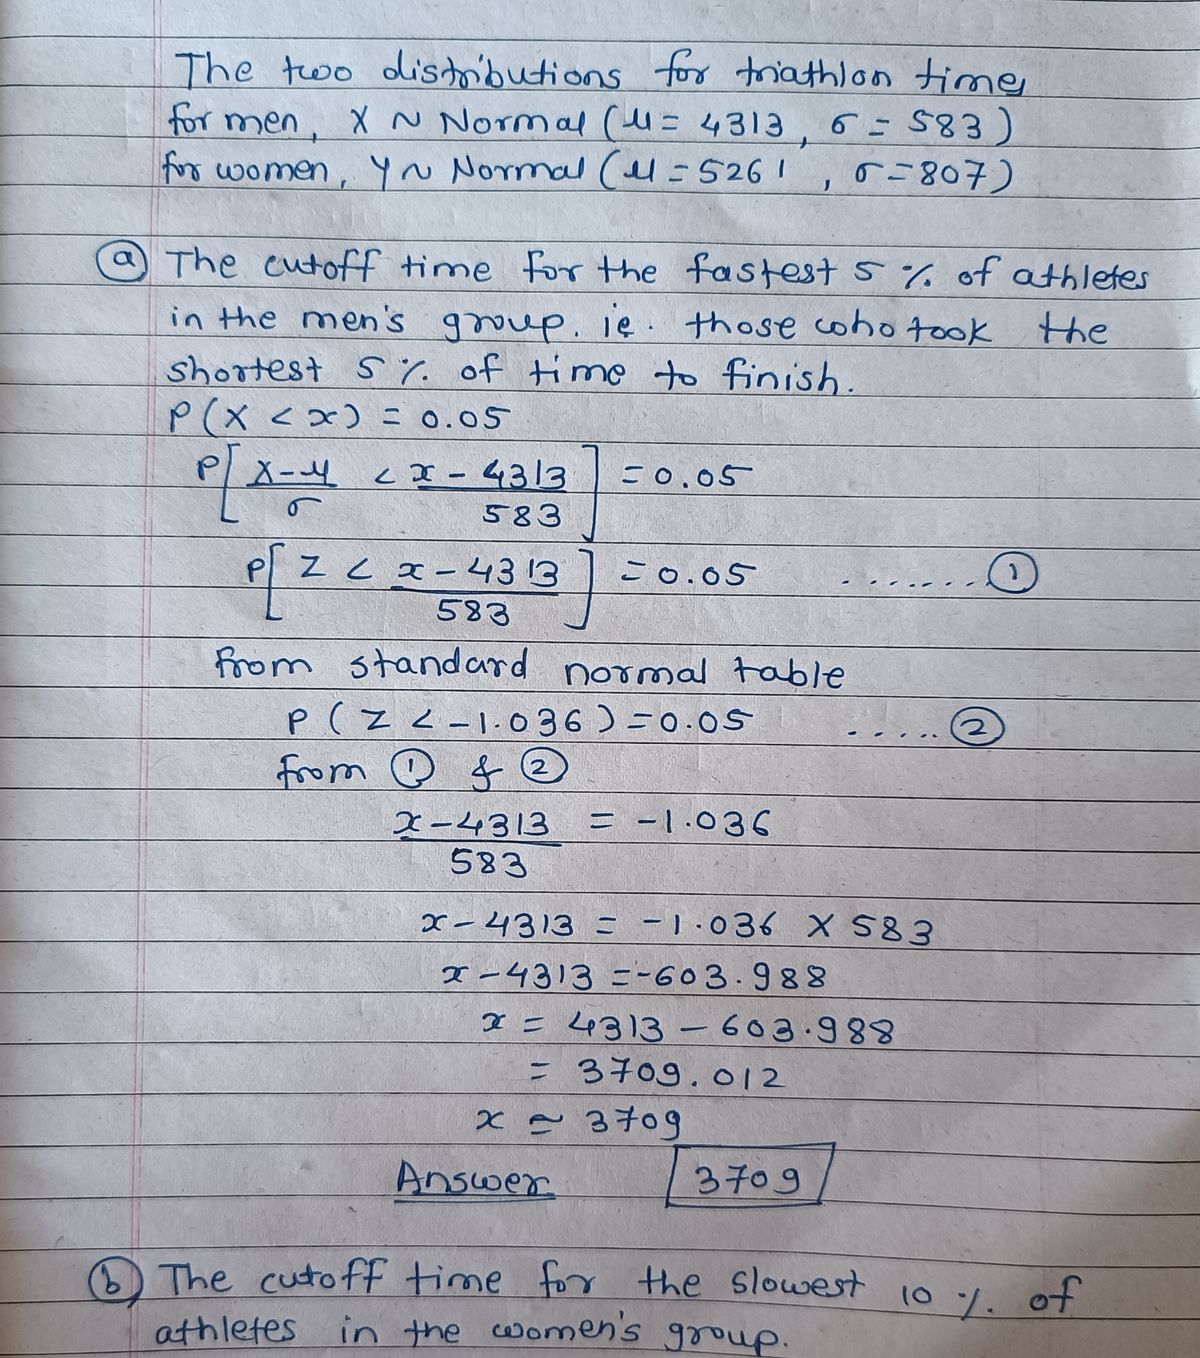 The two distributions for triathlon times
for men, X ~ Normal (μ = 4313, σ = 583)
for women, Y ~ Normal (μ = 5261, σ = 807)
(a) The cutoff time for the fastest 5 % of athletes
in the men's group. ie. those who took the
shortest 5 % of time to finish.
P(X < x) = 0.05
P[(X-μ)/σ < (x - 4313)/583] = 0.05
P[Z < (x - 4313)/583] = 0.05 ........ ①
From standard normal table
P(Z < -1.036) = 0.05 ..... ②
from ① & ②
(x - 4313)/583 = -1.036
x - 4313 = -1.036 × 583
x - 4313 = -603.988
x = 4313 - 603.988
= 3709.012
x ≃ 3709
Answer 3709
(b) The cutoff time for the slowest 10 % of
athletes in the women's group.